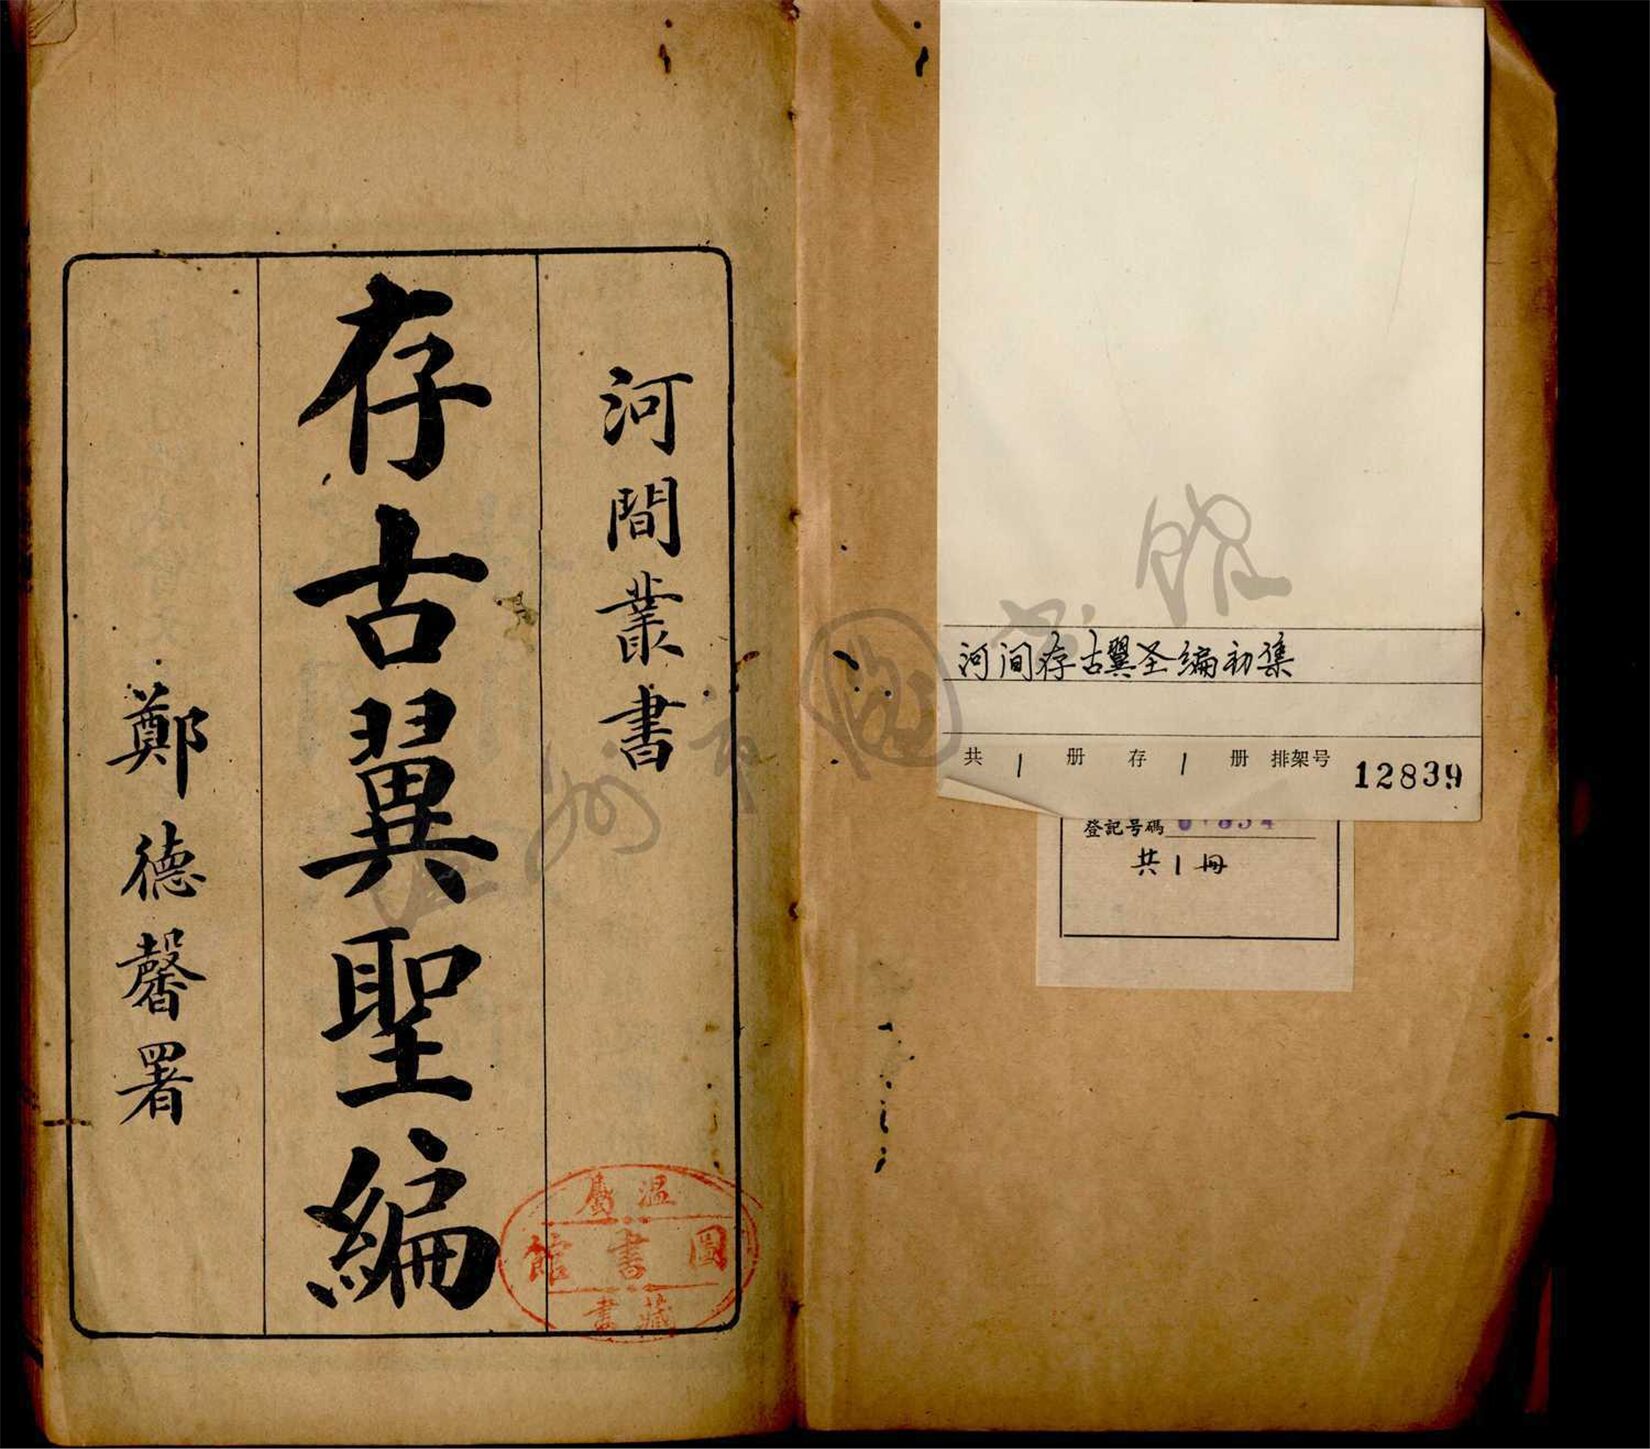 河间存古翼圣编初集
共 1 册 存 1 册 排架号 12839
登記号碼
共1冊
河間叢書
存古翼聖編
鄭德馨署
温屬
圖書館
藏書
温州市圖書館